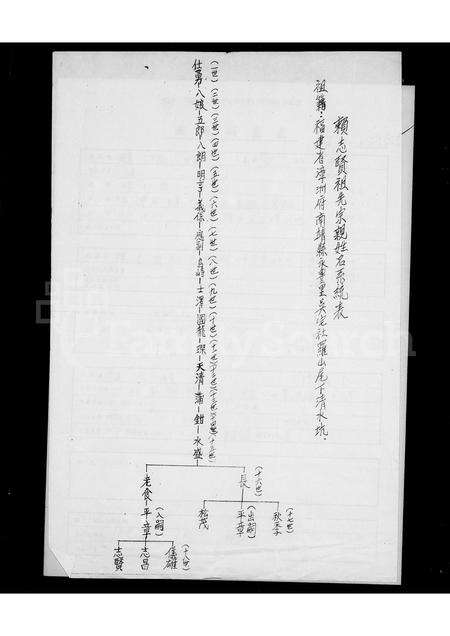 賴志賢祖先宗親姓名系統表
祖籍：福建省漳州府南靖縣永豊里吳宅社羅山尾下清水坑.
(一世)(二世)(三世)(四世)(五世)(六世)(七世)(八世)(九世)(十世)(十一世)(十二世)(十三世)(十四世)(十五世)
八娘-五郎-八朗-明亨-義保
士澤-國龍-琛-天清-蒲-鉗-水盛
(十六世)
長
老食-平章(入嗣)
(十七世)
秋季
平章(出嗣)
松茂
(十八世)
儀雄
志昌
志賢
FamilySearch